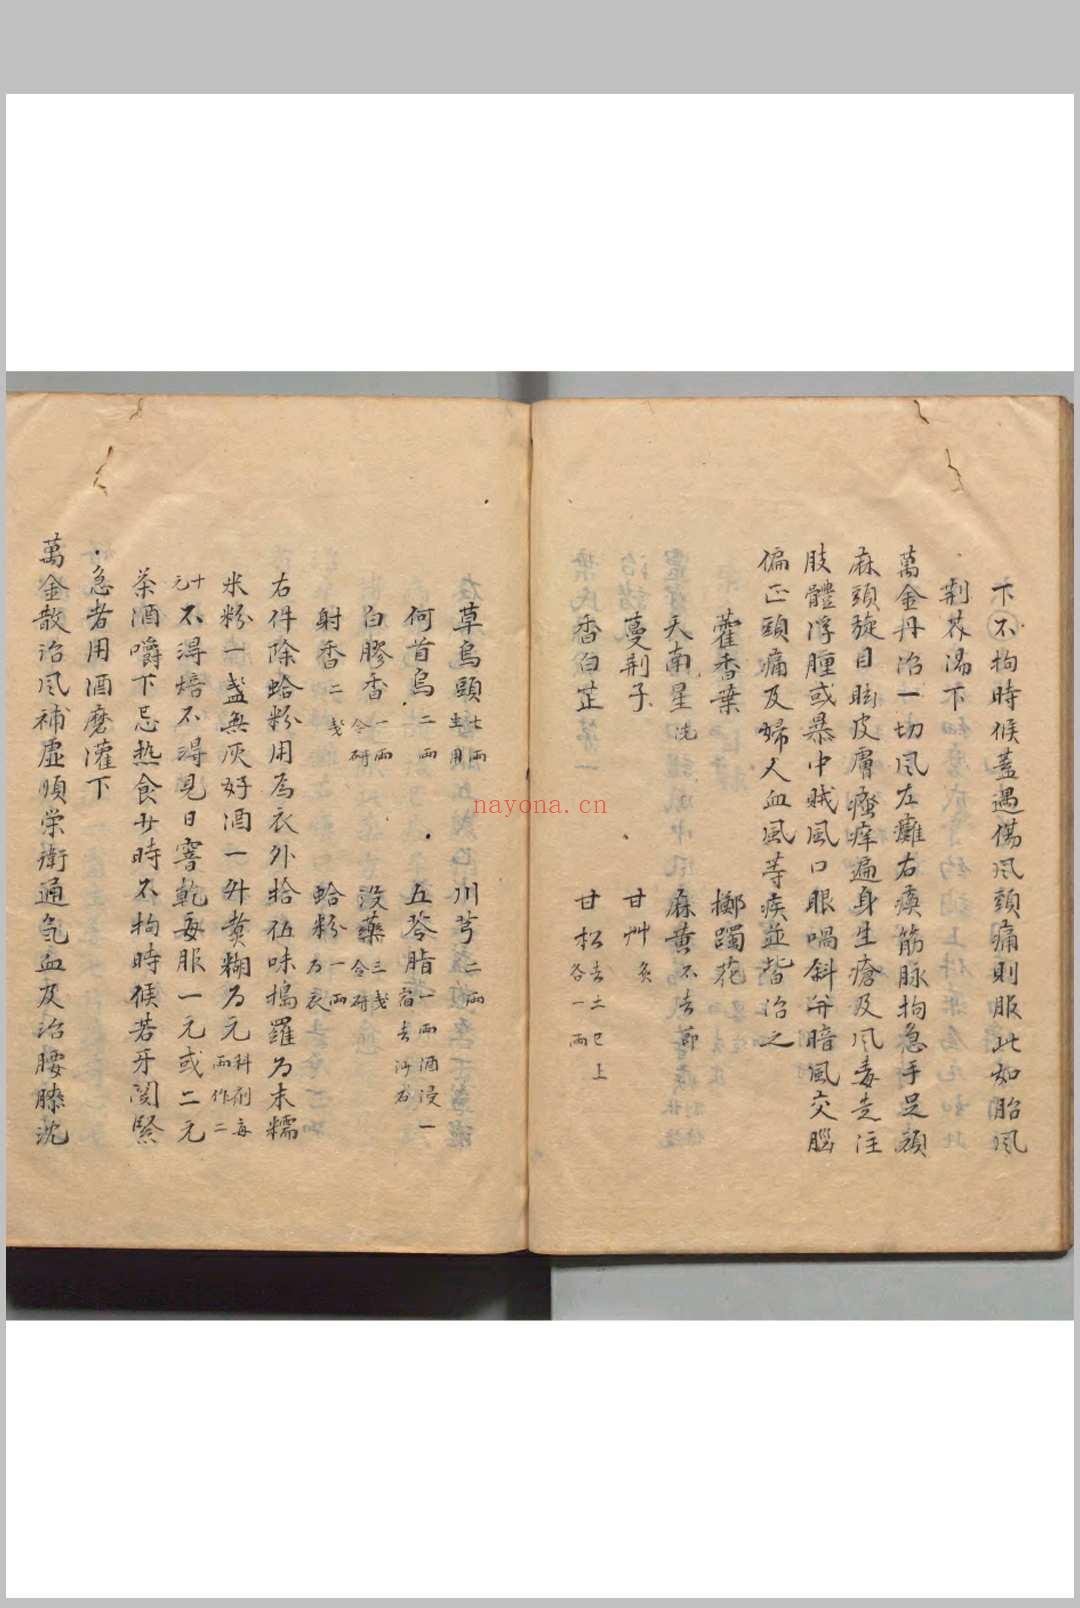 下不拘時候蓋遇傷风頭痛則服此如胎风
荆芥湯下
萬金丹治一切风左癱右瘓筋脉拘急手足頑
麻頭旋目眩皮膚瘙痒遍身生瘡及风毒走注
肢體浮腫或暴中賊風口眼喎斜并暗風交腦
偏正頭痛及婦人血風等疾並皆治之
藿香葉 擲躅花
天南星洗 麻黄不去節
蔓荆子 甘艸炙
香白芷 甘松去土已上各一兩
草烏頭七兩生用 川芎二兩
何首烏二兩 五苓脂一兩酒浸一宿去沙石
白膠香一兩令研 没藥三戔令研
射香二戔 蛤粉一兩为衣
右件除蛤粉用為衣外拾伍味搗羅为末糯
米粉一盞無灰好酒一升煑糊为元科劑每兩作二
十元不淂焙不淂見日窨乾每服一元或二元
茶酒嚼下忌热食廿時不拘時候若牙関緊
急者用酒磨灌下
萬金散治风補虚順荣衛通氣血及治腰膝沈
nayona.cn